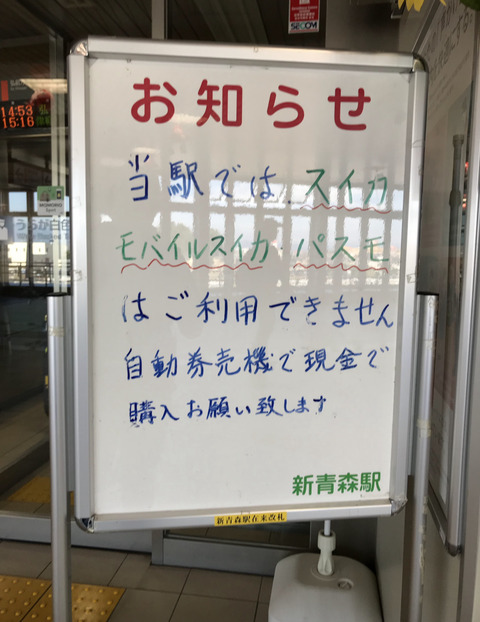 SECOM
14:53 弘
15:16
お知らせ
当駅では、スイカ
モバイルスイカ・パスモ
はご利用できません
自動券売機で現金で
購入お願い致します
新青森駅
新青森駅在来改札